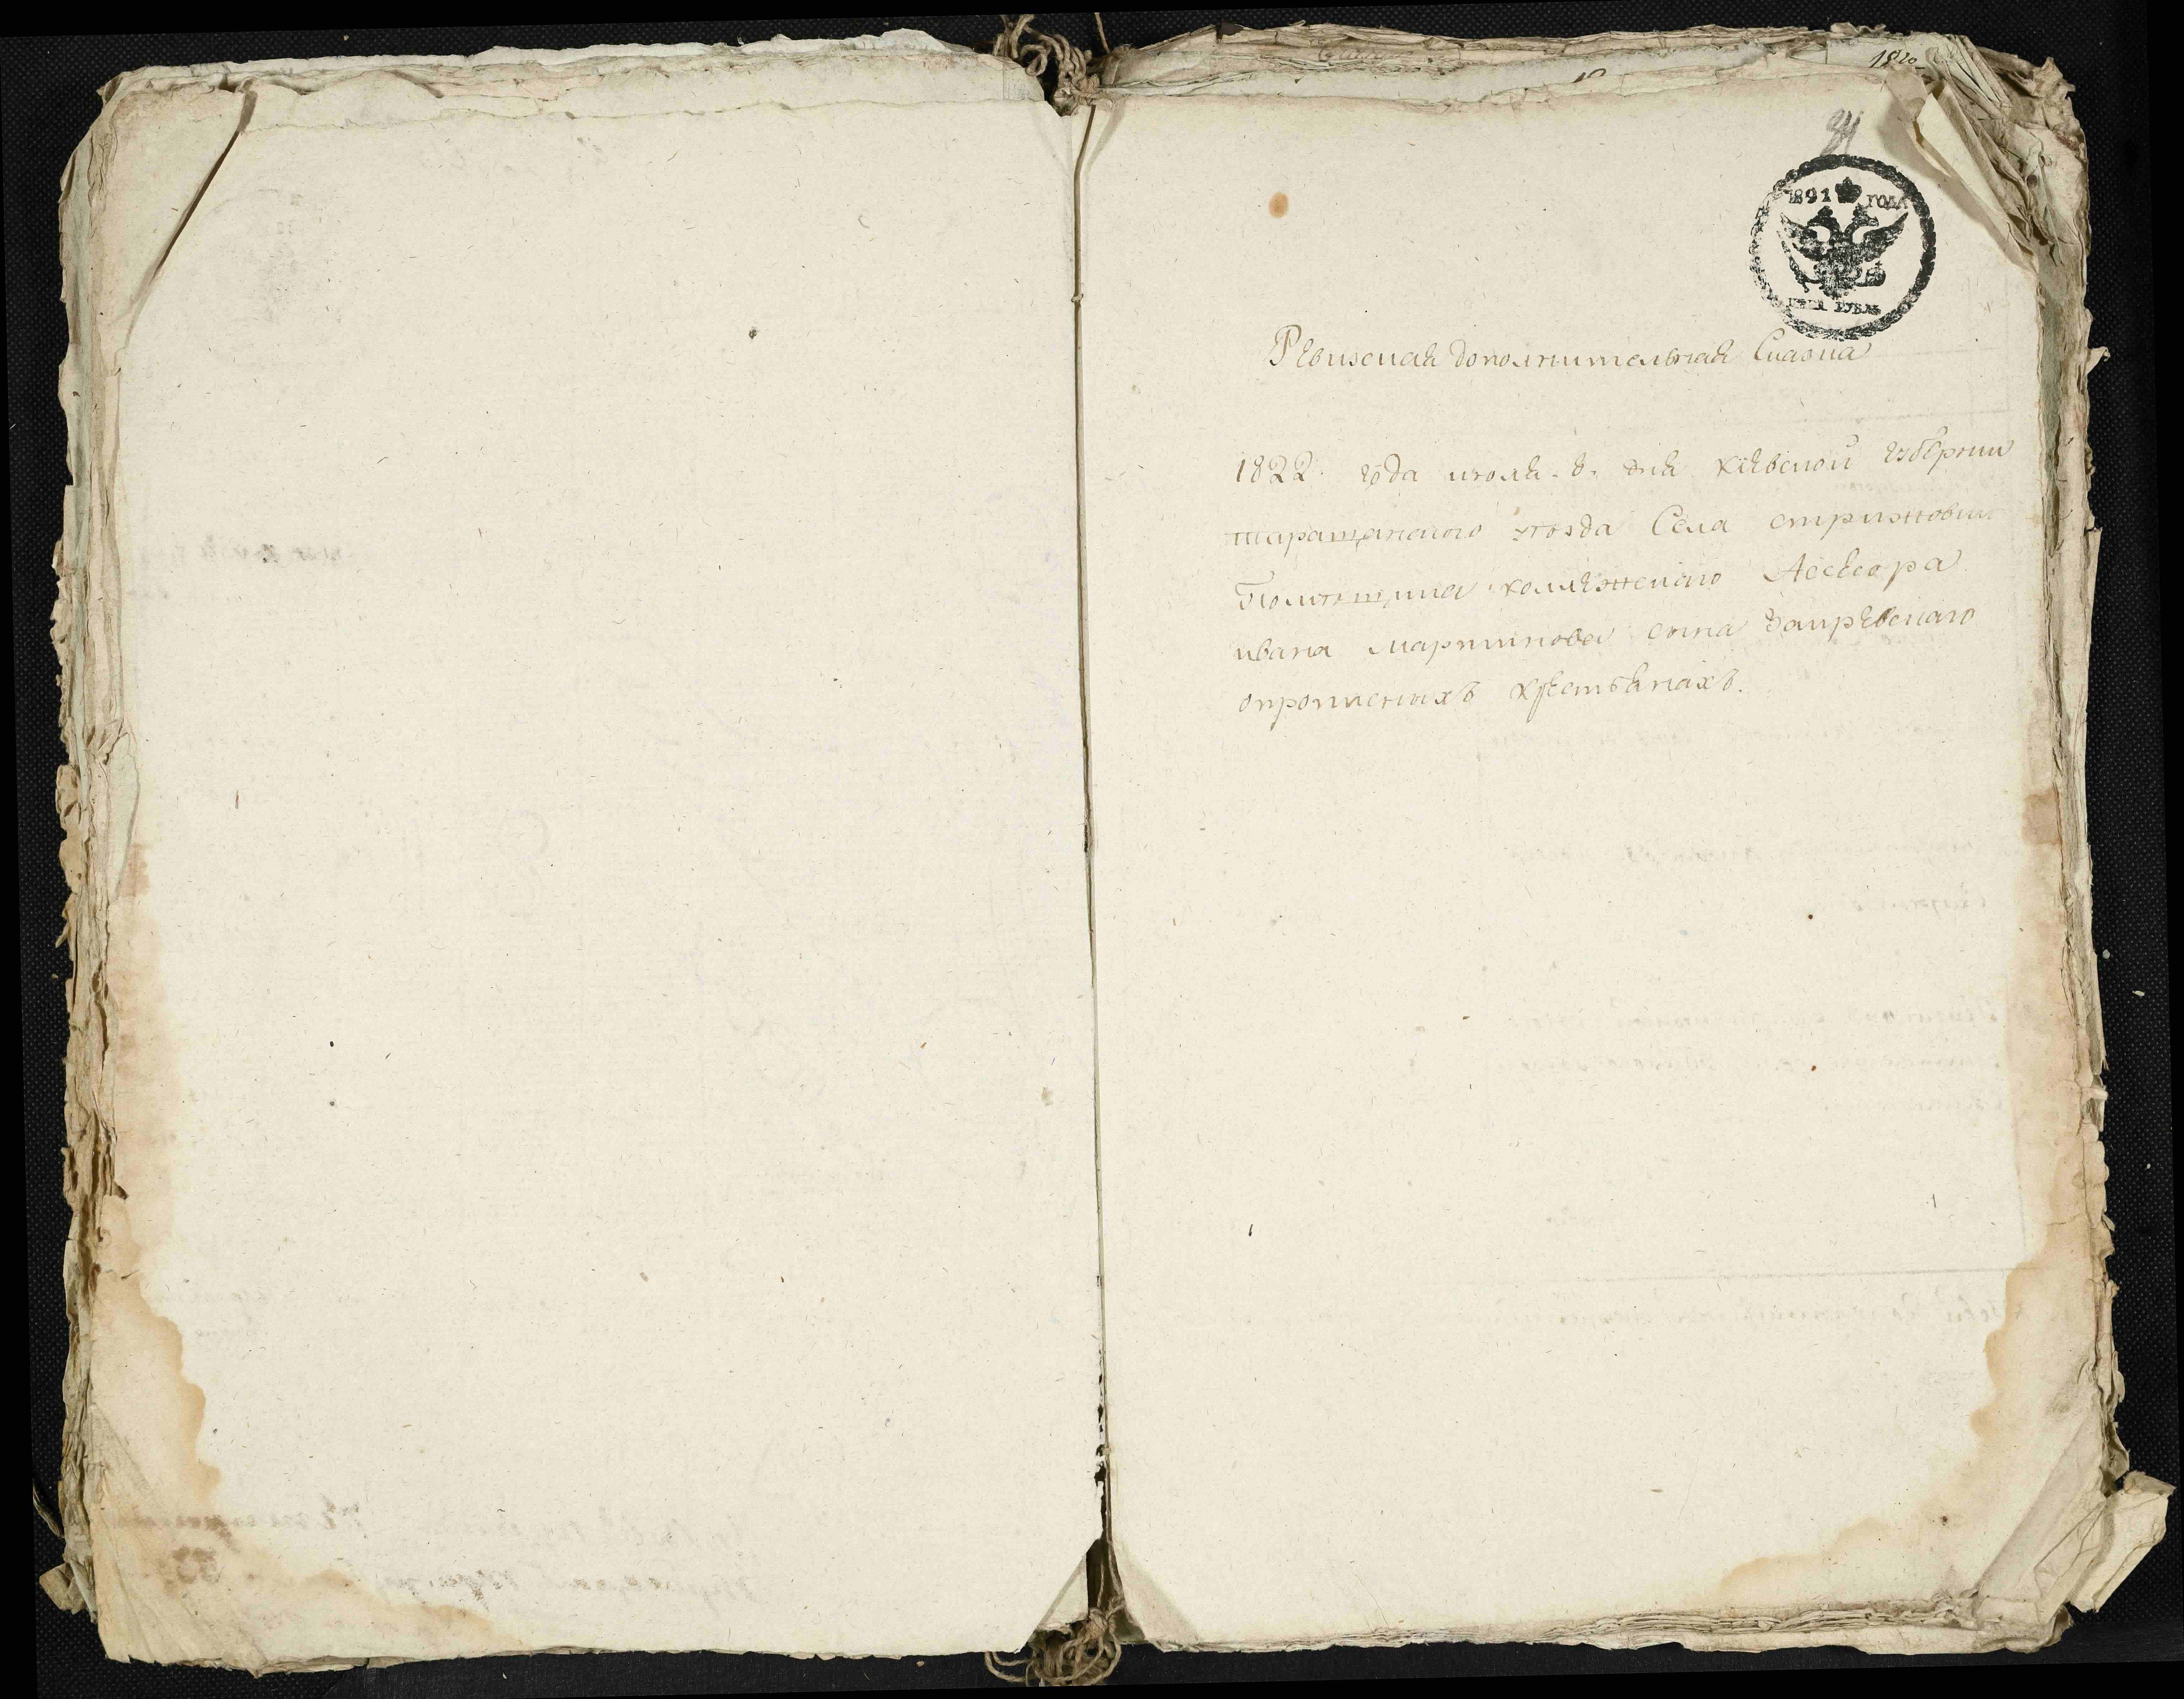 1820
31
1821 ГОДА
ЦЕНА РУБЛЬ
Ревиская дополнительная Сказка
1822. года июля. 8. дня киевской губернии
таращанского уезда Села стрижовки
Помещика коллежского Ассесора
ивана мартинова сына Закревского
опрописныхъ крестьянахъ.